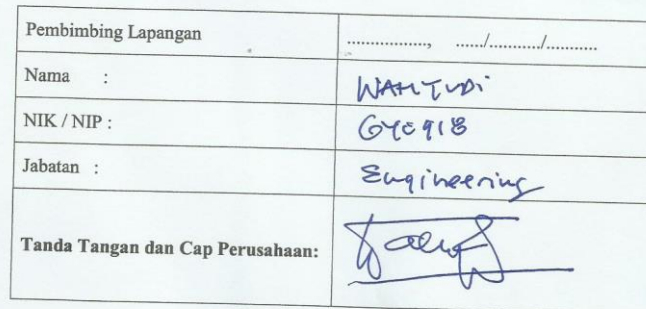 Pembimbing Lapangan ................., ....../.........../...........
Nama : WAHYUDi
NIK / NIP :
Jabatan : Engineering
Tanda Tangan dan Cap Perusahaan: